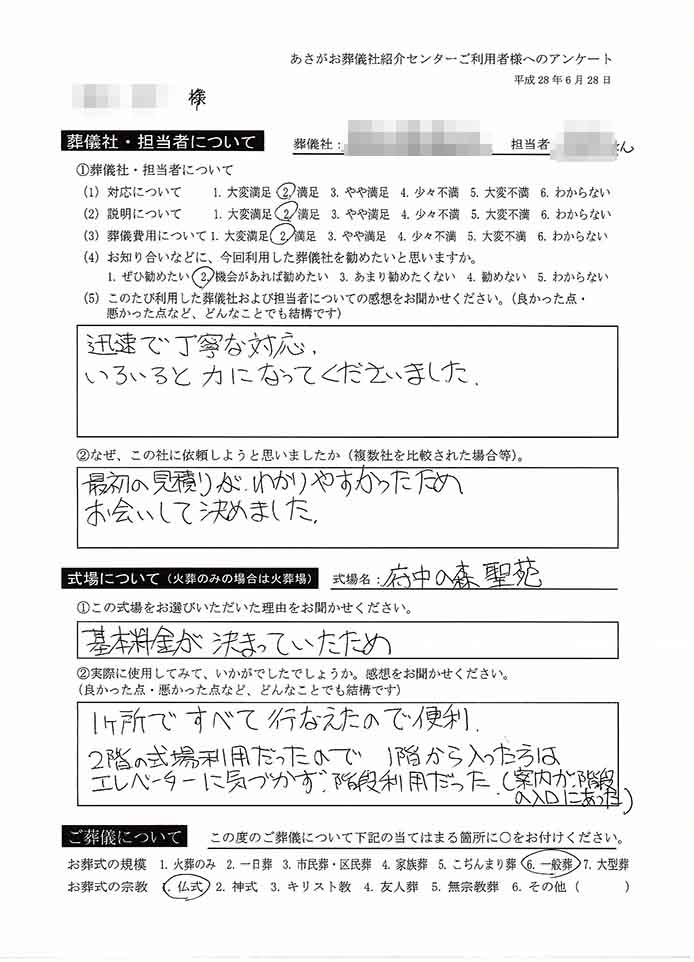 あさがお葬儀社紹介センターご利用者様へのアンケート
平成28年6月28日
様
葬儀社・担当者について 葬儀社: 担当者 さん
①葬儀社・担当者について
(1) 対応について 1. 大変満足 2. 満足 3. やや満足 4. 少々不満 5. 大変不満 6. わからない
(2) 説明について 1. 大変満足 2. 満足 3. やや満足 4. 少々不満 5. 大変不満 6. わからない
(3) 葬儀費用について 1. 大変満足 2. 満足 3. やや満足 4. 少々不満 5. 大変不満 6. わからない
(4) お知り合いなどに、今回利用した葬儀社を勧めたいと思いますか。
1. ぜひ勧めたい 2. 機会があれば勧めたい 3. あまり勧めたくない 4. 勧めない 5. わからない
(5) このたび利用した葬儀社および担当者についての感想をお聞かせください。(良かった点・
悪かった点など、どんなことでも結構です)
迅速で丁寧な対応.
いろいろと力になってくださいました.
②なぜ、この社に依頼しようと思いましたか(複数社を比較された場合等)。
最初の見積りが、わかりやすかったため
お会いして決めました.
式場について(火葬のみの場合は火葬場) 式場名: 府中の森聖苑
①この式場をお選びいただいた理由をお聞かせください。
基本料金が決まっていたため
②実際に使用してみて、いかがでしたでしょうか。感想をお聞かせください。
(良かった点・悪かった点など、どんなことでも結構です)
1ヶ所ですべて行なえたので便利.
2階の式場利用だったので 1階から入った方は
エレベーターに気づかず、階段利用だった.(案内が階段
の入口にあった)
ご葬儀について この度のご葬儀について下記の当てはまる箇所に○をお付けください。
お葬式の規模 1. 火葬のみ 2. 一日葬 3. 市民葬・区民葬 4. 家族葬 5. こぢんまり葬 6. 一般葬 7. 大型葬
お葬式の宗教 1. 仏式 2. 神式 3. キリスト教 4. 友人葬 5. 無宗教葬 6. その他( )